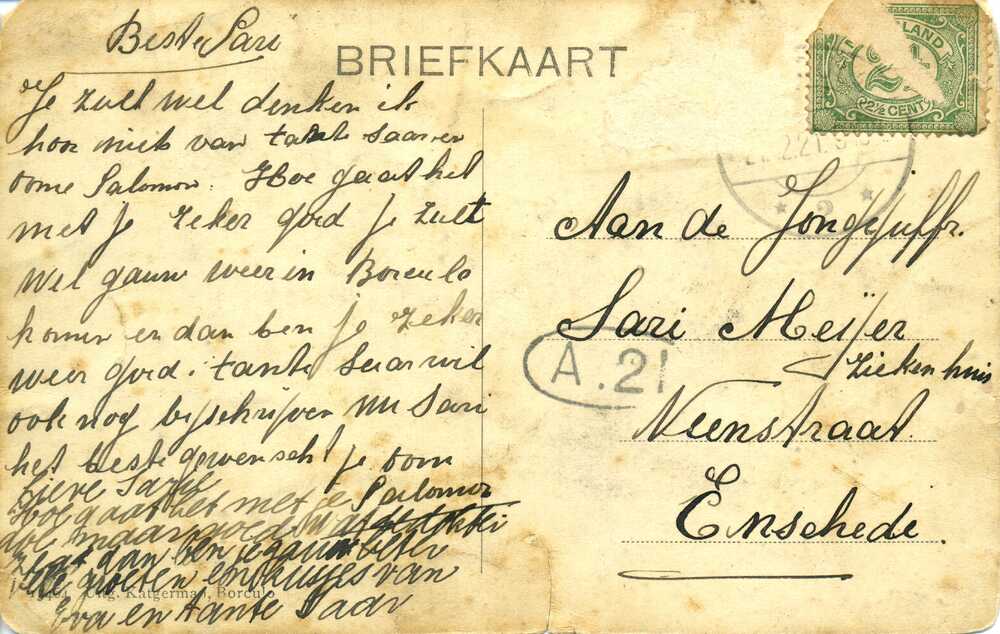 Beste Sari
BRIEFKAART
Je zult wel denken ik
hoor niet van tante Saar en
oome Salomon. Hoe gaat het
met je zeker goed je zult
wel gauw weer in Borculo
komen en dan ben je zeker
weer goed. tante Saar wil
ook nog bijschrijven nu Sari
het beste gewenscht je oom
Salomon
Lieve Sari
Hoe gaat het met je
doe maar goed wat de dokter
zegt dan ben je gauw beter
vele groeten en kusjes van
Eva en tante Saar
Uitg. Katgerman, Borculo
LAND
2½ CENT
2.21.
A.21
Aan de Jongejuffr.
Sari Meijer
Ziekenhuis
Veenstraat.
Enschede.